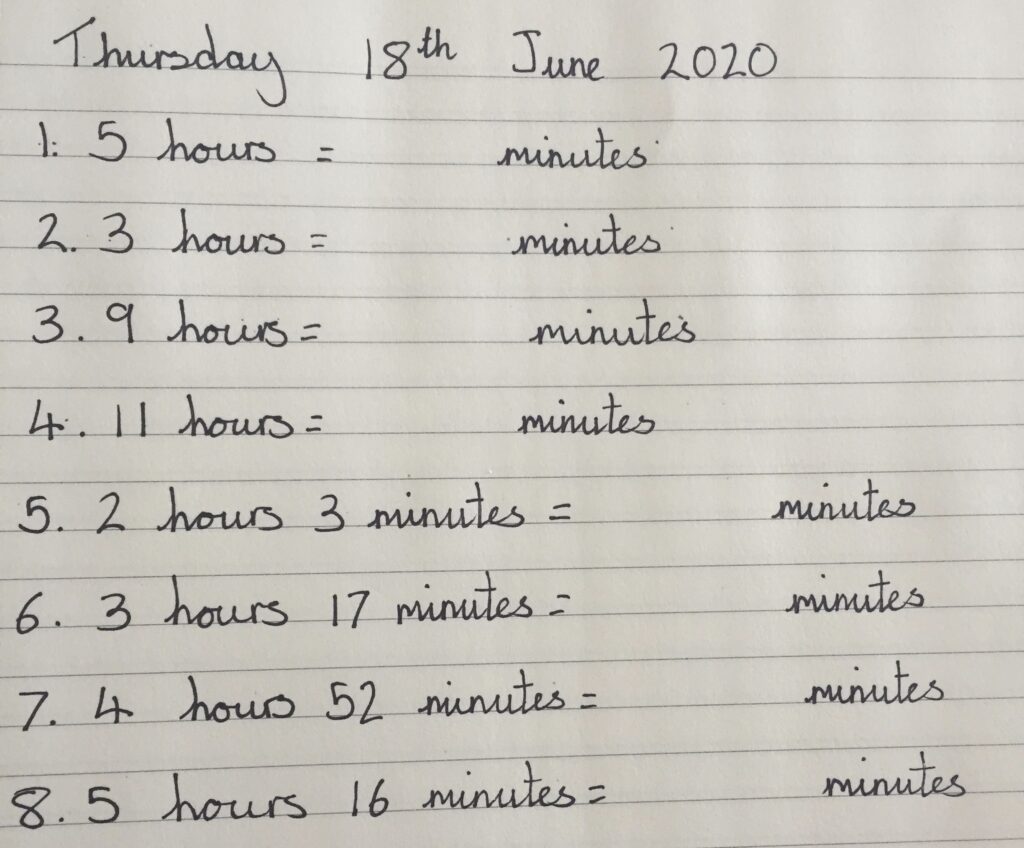 Thursday 18th June 2020
1. 5 hours = minutes
2. 3 hours = minutes
3. 9 hours = minutes
4. 11 hours = minutes
5. 2 hours 3 minutes = minutes
6. 3 hours 17 minutes = minutes
7. 4 hours 52 minutes = minutes
8. 5 hours 16 minutes = minutes